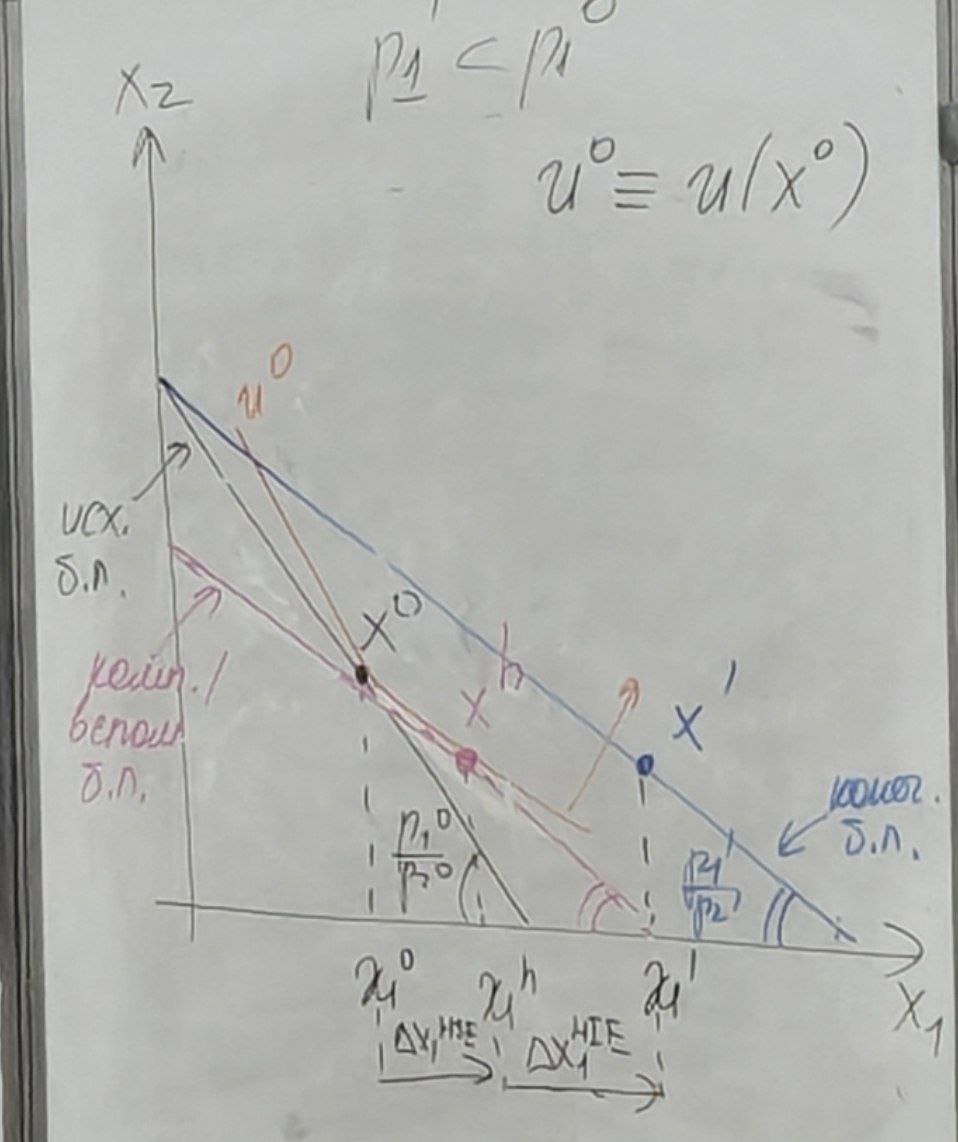 p₁ < p₁⁰
x₂
u⁰ ≡ u(x⁰)
u⁰
исх.
б.л.
x⁰
комп./
вспом
б.л.
xʰ
x'
конеч.
б.л.
p₁⁰/p₂⁰
p₁'/p₂'
x₁⁰ x₁ʰ x₁'
x₁
Δx₁ᴴˢᴱ Δx₁ᴴᴵᴱ